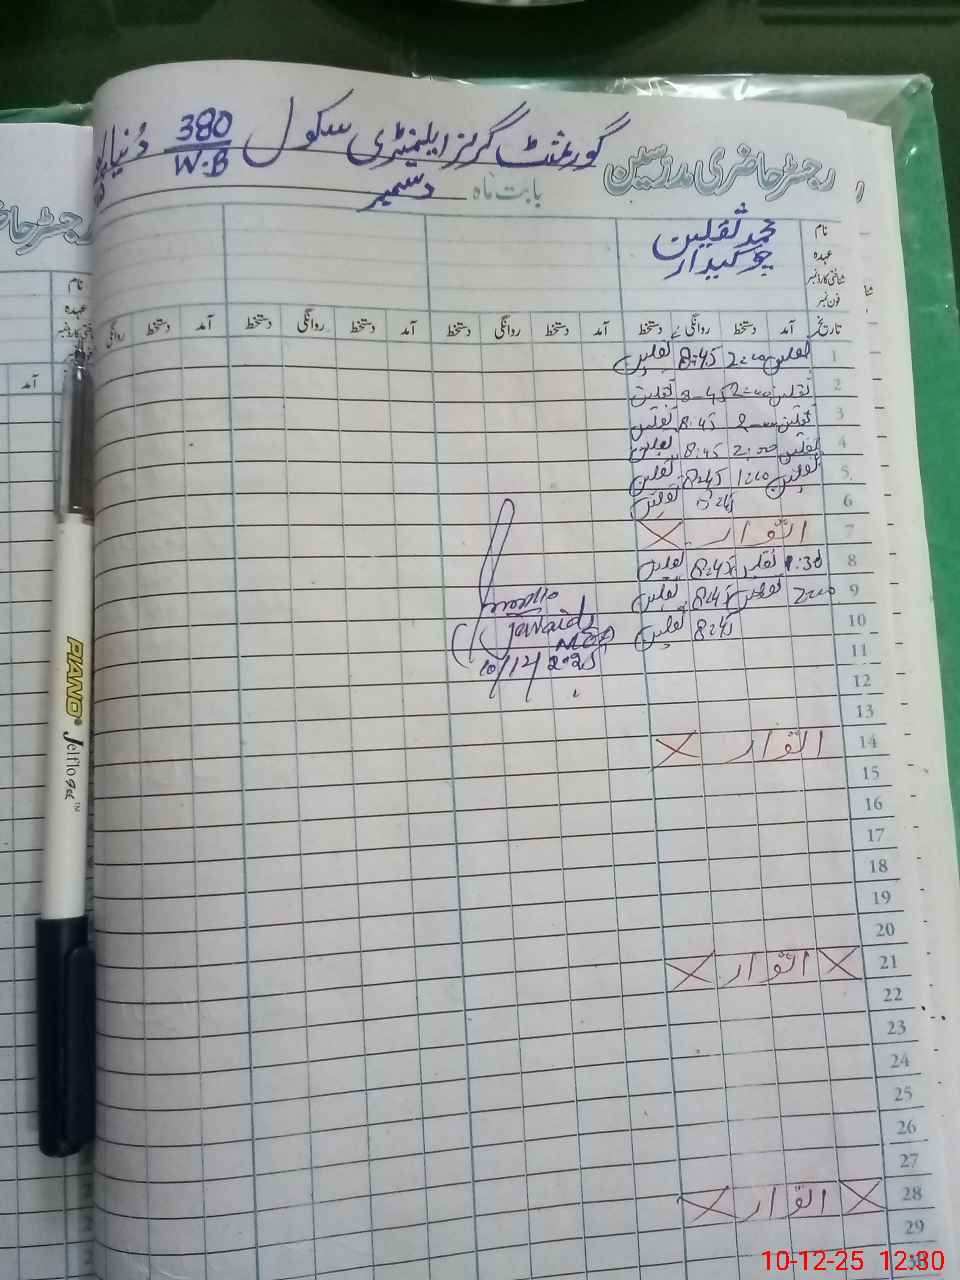 رجسٹر حاضری مدرسین گورنمنٹ گرلز ایلیمنٹری سکول 380/W.B دُنیاپور
بابت ماہ دسمبر
نام محمد ثقلین
عہدہ چوکیدار
شناختی کارڈ نمبر
فون نمبر
تاریخ آمد دستخط روانگی دستخط آمد دستخط روانگی دستخط آمد دستخط روانگی دستخط آمد دستخط روانگی
1 ثقلین 2:00 8:45 ثقلین
2 ثقلین 2:00 8-45 ثقلین
3 ثقلین 8:45 ثقلین
4 ثقلین 2:00 8:45 ثقلین
5 ثقلین 1:00 8:45 ثقلین
6 8:45 ثقلین
7 اتوار
8 1:30 ثقلین 8:45 ثقلین
9 2:00 ثقلین 8:45 ثقلین
10 8:45 ثقلین
11
12
13
14 اتوار
15
16
17
18
19
20
21 اتوار
22
23
24
25
26
27
28 اتوار
29
30
Javaid
10/12/2025
رجسٹر حا
نام
عہدہ
آمد
PIANO
Jelflo gel™
10-12-25 12:30